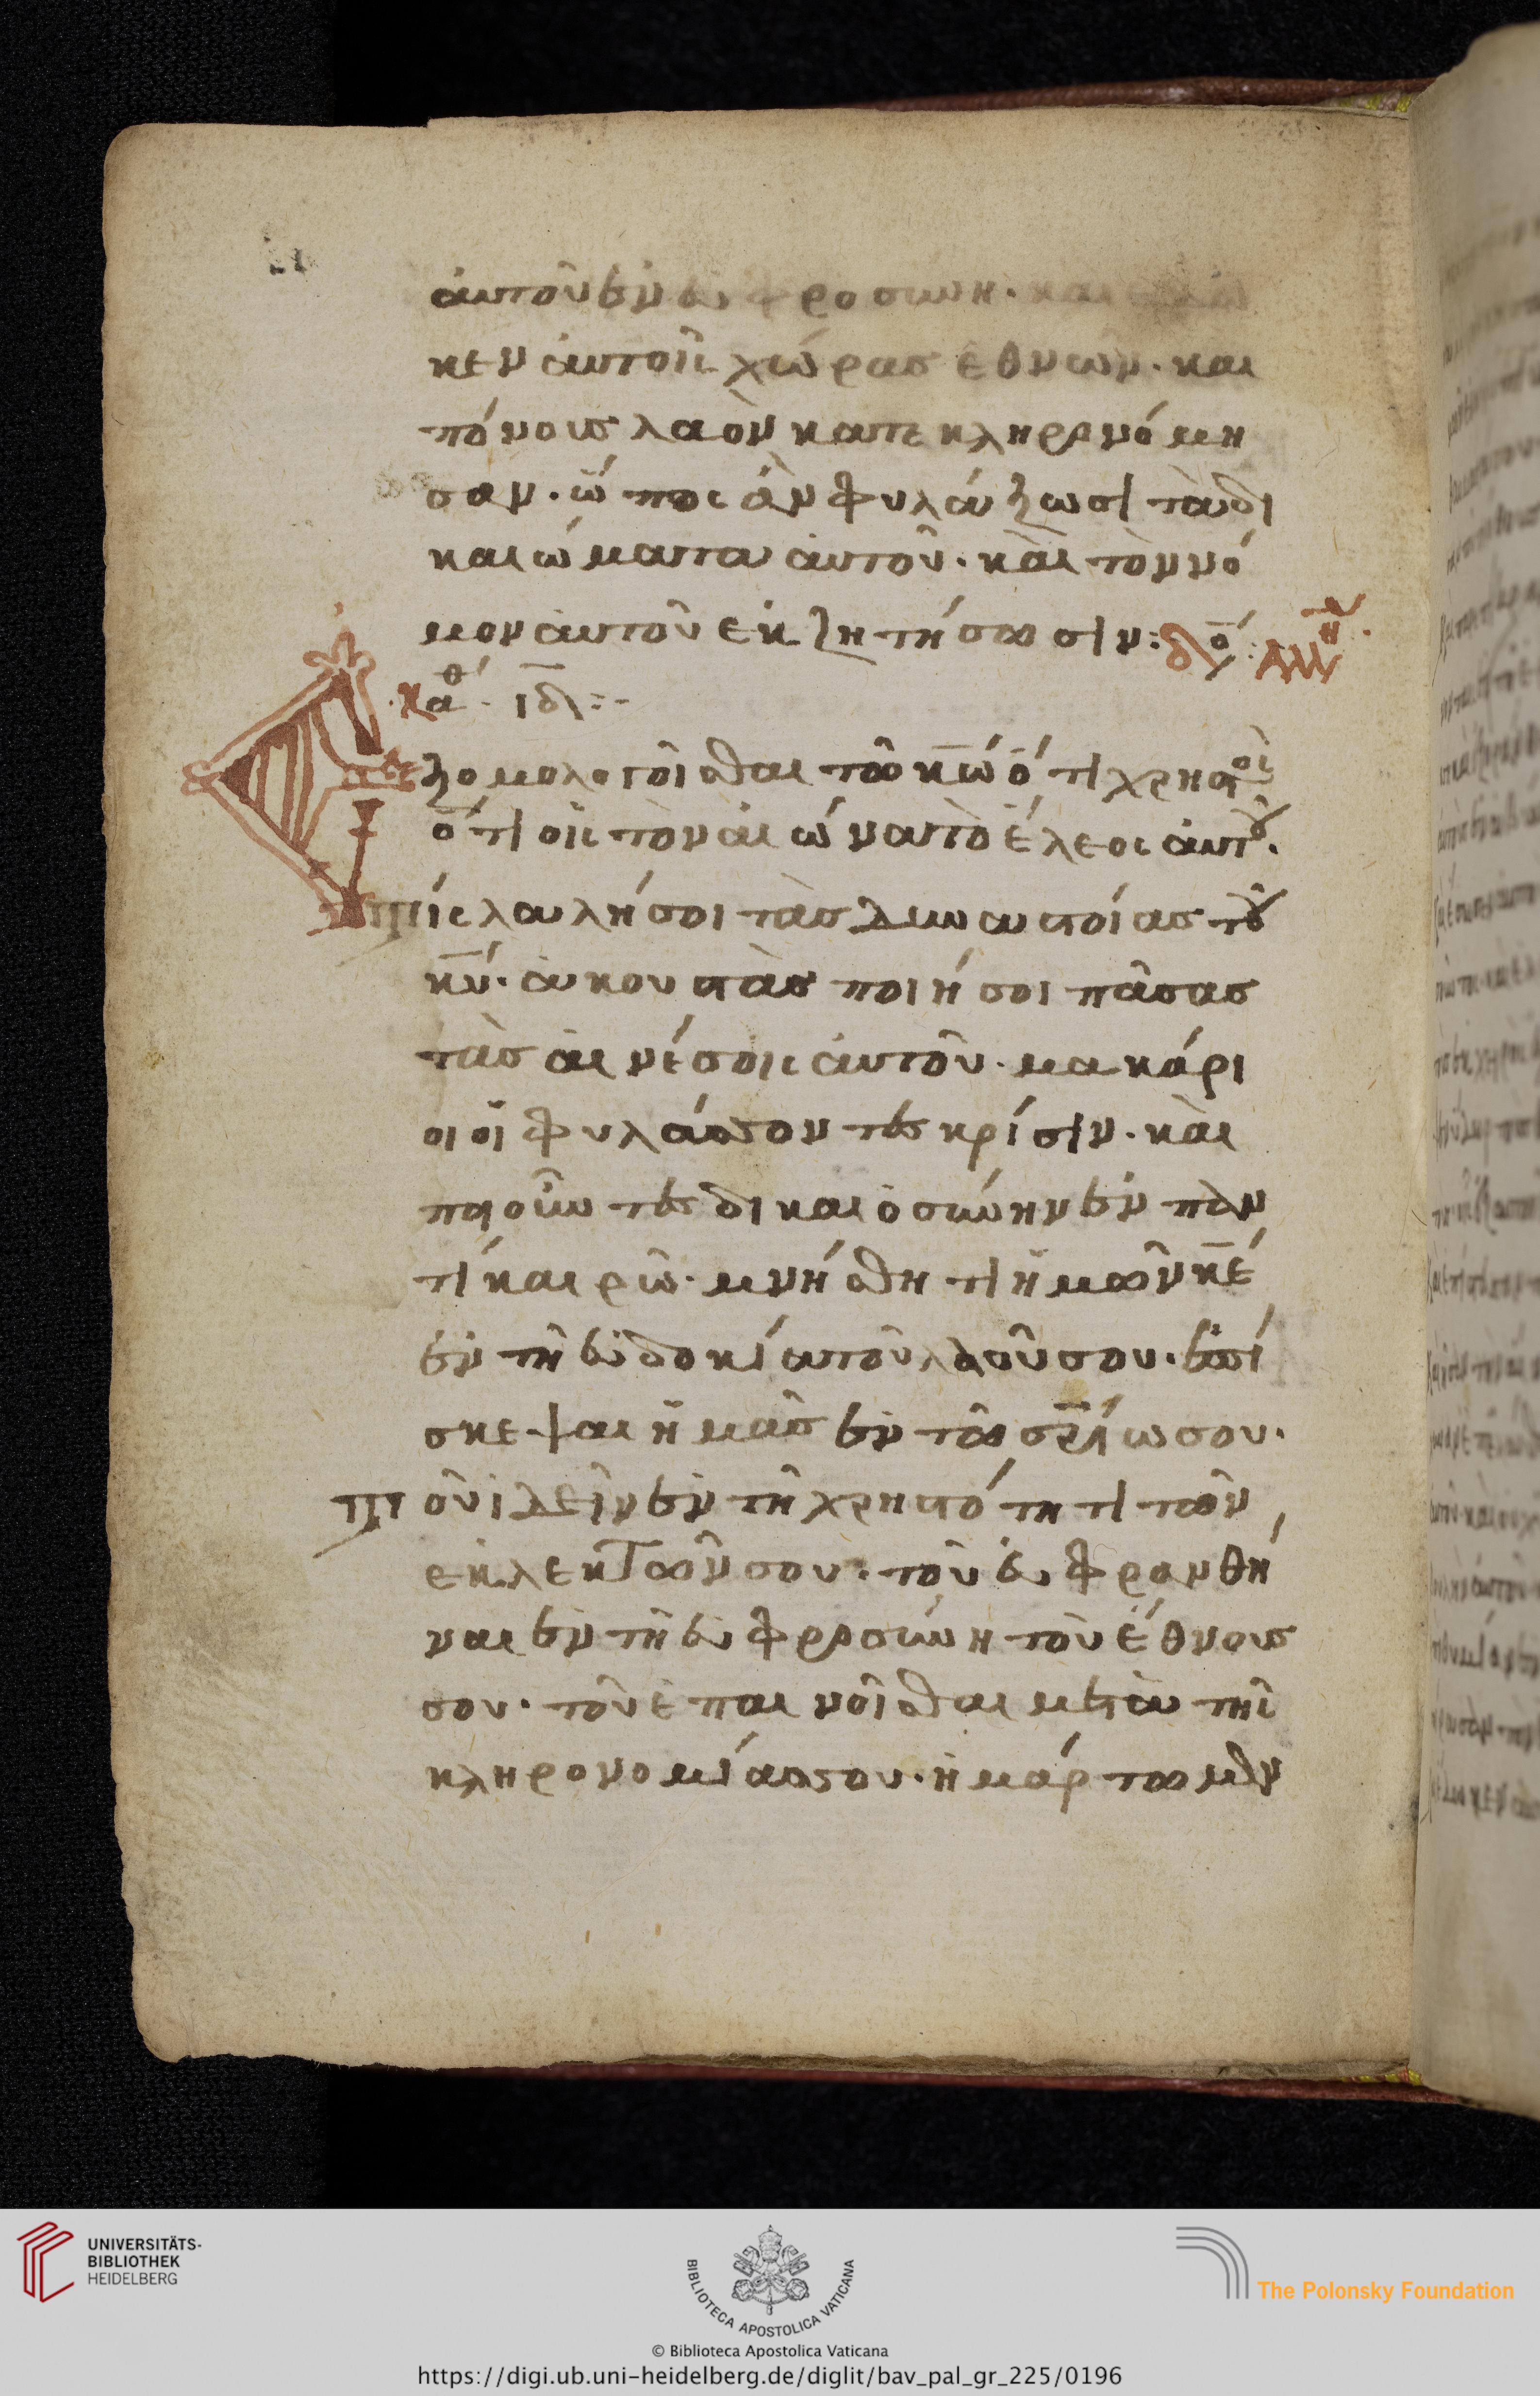 ἀυτοῦ ἐν ἐυφροσύνη. και
κεν ἀυτοῖς χώρας ἐθνων. και
πόνους λαὸν κατεκληρονόμη
σαν. ὅπος ἀν φυλάξωσι τὰ δι
καιώματα ἀυτοῦ. κὰι τὸν νό
μον ἀυτοῦ ἐκζητήσωσιν: δό: Ἀλλη
Καθ. ιδ:-
Ἐξομολογεῖσθαι τῶ κ̅ω ὅτι χρηστος
ὅτι εἰς τὸν ἀιώνα τὸ ἔλεος ἀυτοῦ.
τίς λαλήσει τὰς δυναστείας τοῦ
κ̅υ. ἀκουστὰς ποιήσει πᾶσας
τὰς ἀινέσεις ἀυτοῦ. μακάρι
οι οἱ φυλάσσοντες κρίσιν. κὰι
ποιοῦντες δικαιοσύνην ἐν παν
τί καιρῶ. μνήσθητι ἡμῶν κ̅ε
ἐν τῆ ἐυδοκία τοῦ λαοῦ σου. ἐπί
σκεψαι ἡμᾶς ἐν τῶ σ̅ρ̅ίω σου.
τοῦ ἰδεῖν ἐν τῆ χρηστότητι τῶν
ἐκλεκτῶν σου. τοῦ ἐυφρανθή
ναι ἐν τῆ ἐυφροσύνη τοῦ ἔθνους
σου. τοῦ ἐπαινεῖσθαι μετὰ τῆς
κληρονομίας σου. ἡμάρτωμεν
UNIVERSITÄTS-
BIBLIOTHEK
HEIDELBERG
BIBLIOTECA APOSTOLICA VATICANA
The Polonsky Foundation
© Biblioteca Apostolica Vaticana
https://digi.ub.uni-heidelberg.de/diglit/bav_pal_gr_225/0196